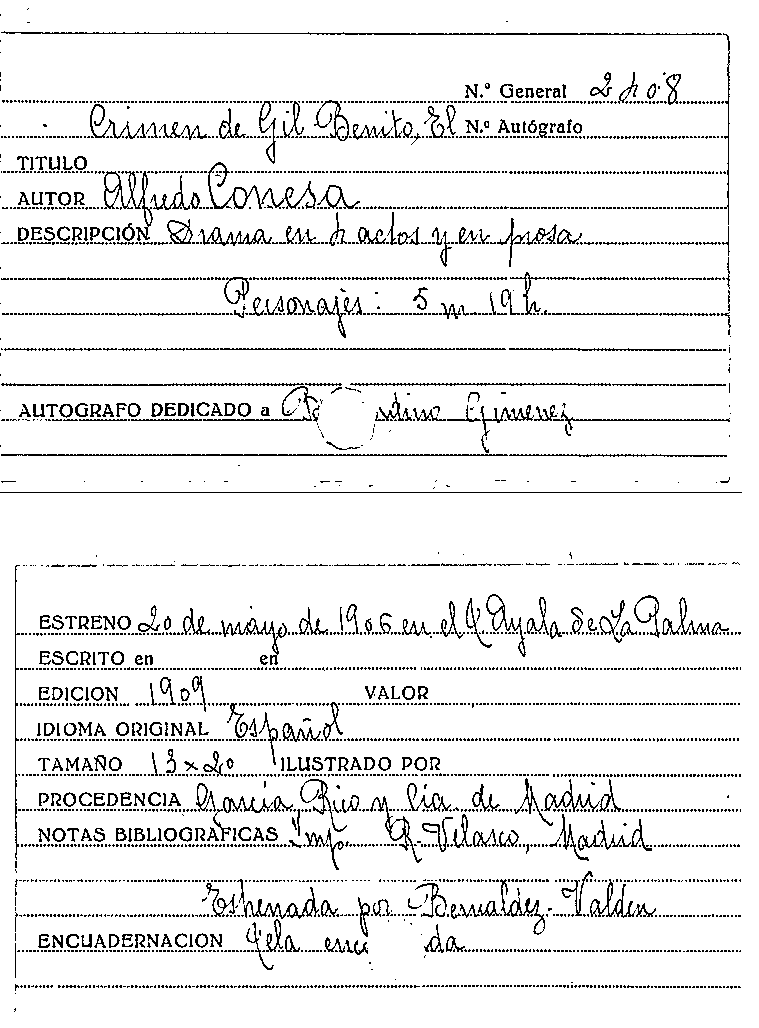 N.º General 2408
Crimen de Gil Benito, El N.º Autógrafo
TITULO
AUTOR Alfredo Conesa
DESCRIPCIÓN Drama en 4 actos y en prosa
Personajes: 5 m 19 h.
AUTOGRAFO DEDICADO a dino Gimenez
ESTRENO 20 de mayo de 1906 en el T. Ayala de La Palma
ESCRITO en en
EDICION 1909 VALOR
IDIOMA ORIGINAL Español
TAMAÑO 13 x 20 ILUSTRADO POR
PROCEDENCIA García Rico y Cia. de Madrid
NOTAS BIBLIOGRAFICAS Imp. R. Velasco, Madrid
Estrenada por Bernaldez-Valden
ENCUADERNACION Tela ence da